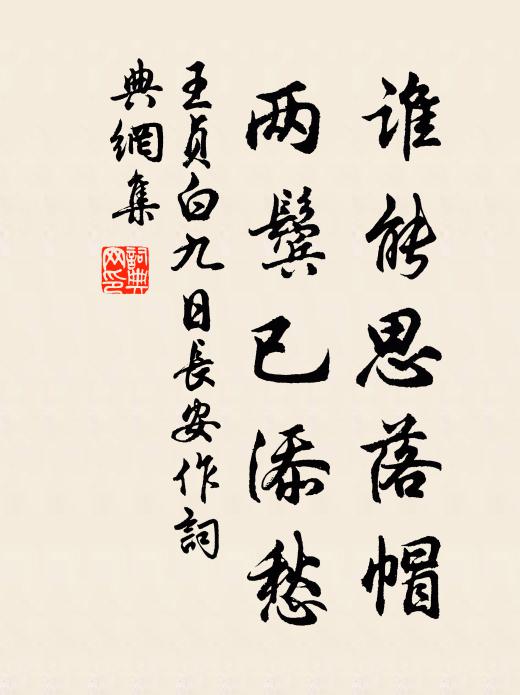 谁能思落帽
两鬓已添愁
王贞白九日長安作詞
典網集
詞典
网印